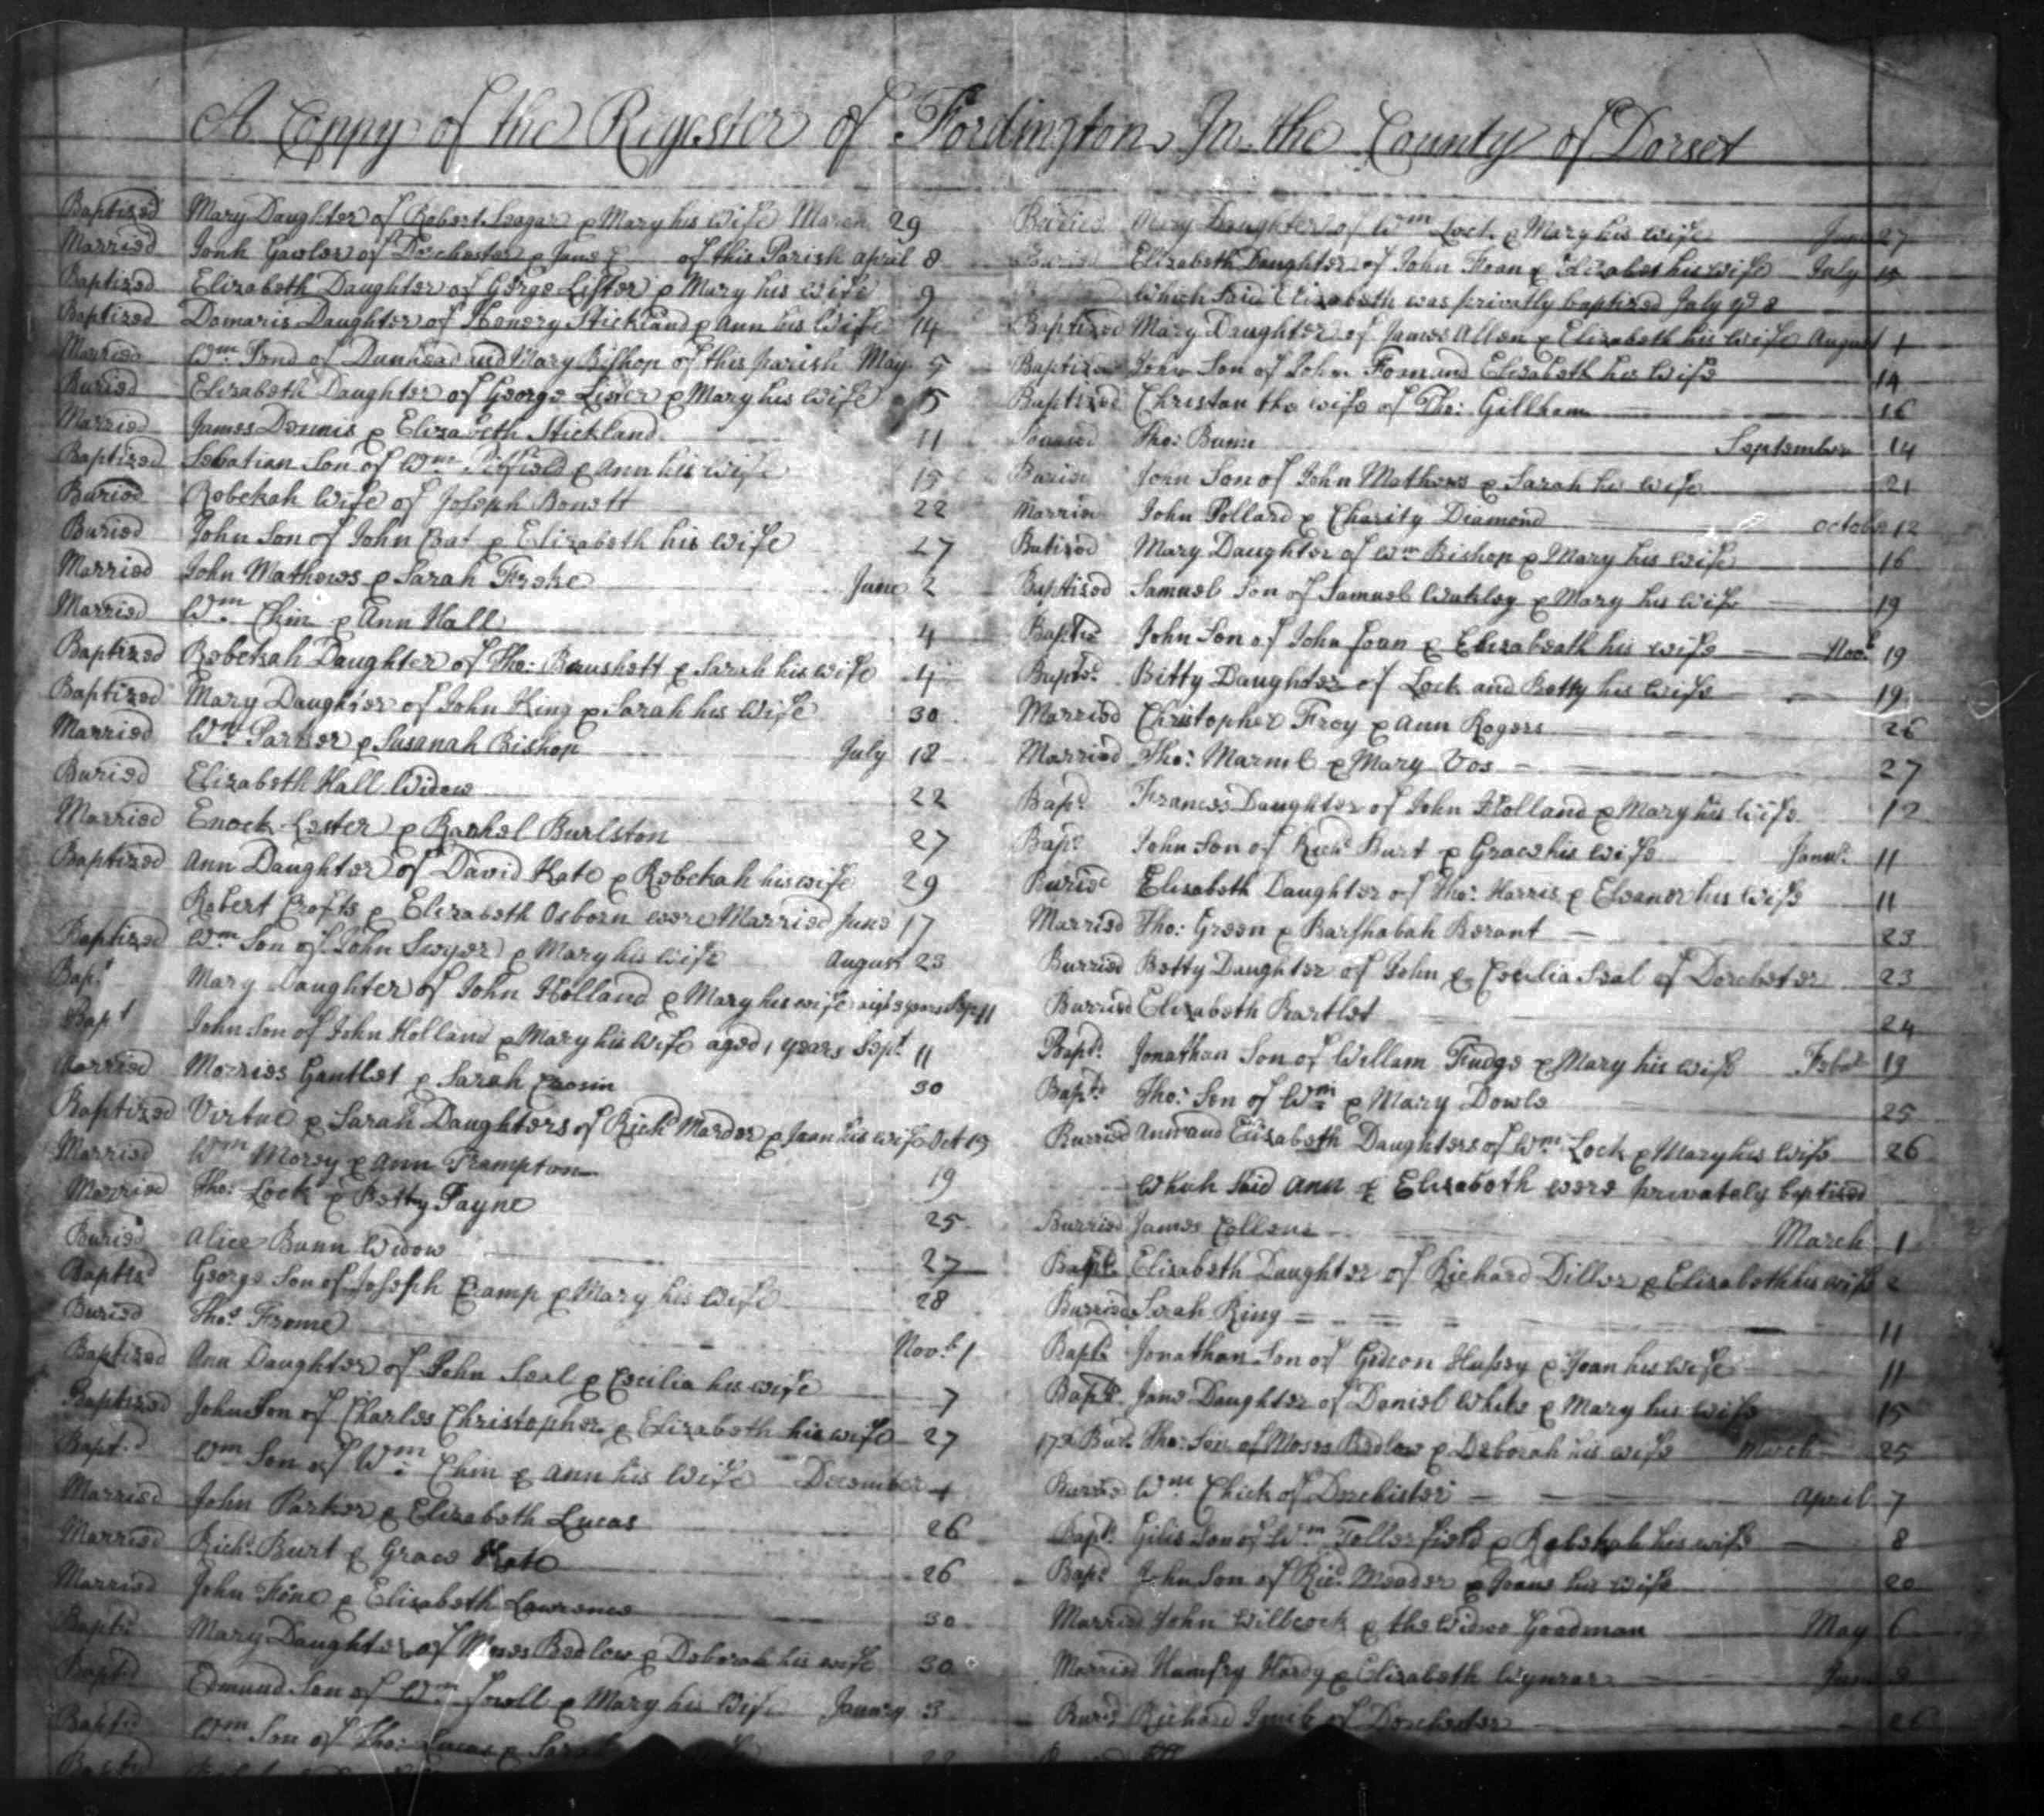 A Coppy of the Rigester of Fordington In the County of Dorset
Baptized Mary Daughter of Robert Seagar & Mary his Wife March 29
Married Jonh Gawler of Dorchester & Jane of this Parish april 8
Baptized Elizabeth Daughter of Gorge Lister & Mary his wife 9
Baptized Domaris Daughter of Henery Stickland & Ann his Wife 14
Married Wm Bond of Dunhead and Mary Bishop of this parish May 5
Buried Elizabeth Daughter of George Lister & Mary his wife 5
Married James Dennis & Elizabeth Stickland 11
Baptized Sebatian Son of Wm & Ann his Wife 15
Buried Robekah Wife of Joseph Bonett 22
Buried John Son of John Bat & Elizabeth his Wife 27
Married John Mathews & Sarah Froke June 2
Married Wm Chin & Ann Hall 4
Baptized Robekah Daughter of Tho: & Sarah his wife 4
Baptized Mary Daughter of John King & Sarah his Wife 30
Married Wm Parker & Susanah Bishop July 18
Buried Elizabeth Hall Widow 22
Married Enock Lester & Rashel Burlston 27
Baptized Ann Daughter of David Kate & Robekah his wife 29
Robert Crofts & Elizabeth Osborn were Married June 17
Baptized Wm Son of John Swyer & Mary his Wife August 23
Bapt Mary Daughter of John Holland & Mary his wife years Sep 11
Bapt John Son of John Holland & Mary his Wife aged 1 years Sept 11
Married Morries Gantlet & Sarah 30
Baptized Virtue & Sarah Daughters of Richd Marder & Joan his wife Oct 13
Married Wm Morey & Ann Frampton 19
Married Tho: Lock & Betty Payne 25
Buried Alice Bunn Widow 27
Baptisd George Son of Joseph Cramp & Mary his Wife 28
Buried Thos Frome Novbr 1
Baptized Ann Daughter of John Seal & Cecilia his wife 7
Baptized John Son of Charles Christopher & Elizabeth his wife 27
Bapt.d Wm Son of Wm Chin & Ann his Wife December 4
Married John Parker & Elizabeth Lucas 26
Married Richd Burt & Grace Kate 26
Married John Fone & Elisabeth Lawrence 30
Baptd Mary Daughter of Moses Bedlow & Deborah his wife 30
Baptd Edmund Son of Wm & Mary his Wife January 3
Baptd Wm Son of Tho: Lucas &
Buried Mary Daughter of Wm Lock & Mary his wife June 27
Buried Elizabeth Daughter of John Foan & Elizabet his wife July
Which Said Elizabeth was privatly baptized July ye 8
Baptized Mary Daughter of James Allen & Elizabeth his Wife August 1
Baptized John Son of John Foan and Elizabeth his Wife 14
Baptized Christan the wife of Tho: Gillham 16
Buried Tho: Bunn September 14
Buried John Son of John Mathews & Sarah his wife 21
Married John Pollard & Charity Diamond october 12
Batized Mary Daughter of Wm Bishop & Mary his Wife 16
Baptised Samuel Son of Samuel Wakley & Mary his Wife 19
Baptiz John Son of John foan & his wife Novbr 19
Baptd Bitty Daughter of Lock and Betty his Wife 19
Married Christopher Froy & Ann Rogers 26
Married Tho: & Mary Vos 27
Bapd Frances Daughter of John Holland & Mary his Wife 12
Bapd John Son of Richd Burt & Grace his wife Januy 11
Buried Elisabeth Daughter of Tho: Harris & Eleanor his Wife 11
Married Tho: Green & Barshabah Berant 23
Burried Betty Daughter of John & Cecilia Seal of Dorchester 23
Burried Elizabeth Bartlet 24
Baptd Jonathan Son of Willam Fudge & Mary his wife Febr 19
Baptd Tho: Son of Wm & Mary Dowle 25
Burried Ann and Elisabeth Daughters of Wm Lock & Mary his wife 26
Which Said Ann & Elisaboth were privately baptised
Burried James Collens March 1
Bapt Elizabeth Daughter of Richard Diller & Elizabeth his wife 2
Burried Sarah King 11
Baptd Jonathan Son of Gideon Hussey & Joan his Wife 11
Baptd Jane Daughter of Daniel White & Mary his wife 15
Bur. Tho: Son of Moses Bedlow & Deborah his wife March 25
Burried Wm Chick of Dorchister april 7
Bapt Gilis Son of Wm Tollerfield & Robekah his wife 8
Bapd John Son of Ricd Meader & Joane his Wife 20
Married John Willcock & the Widwo Goodman May 6
Married Humfry Hardy & Elizabeth June 3
Burid Richard of Dorchester 26